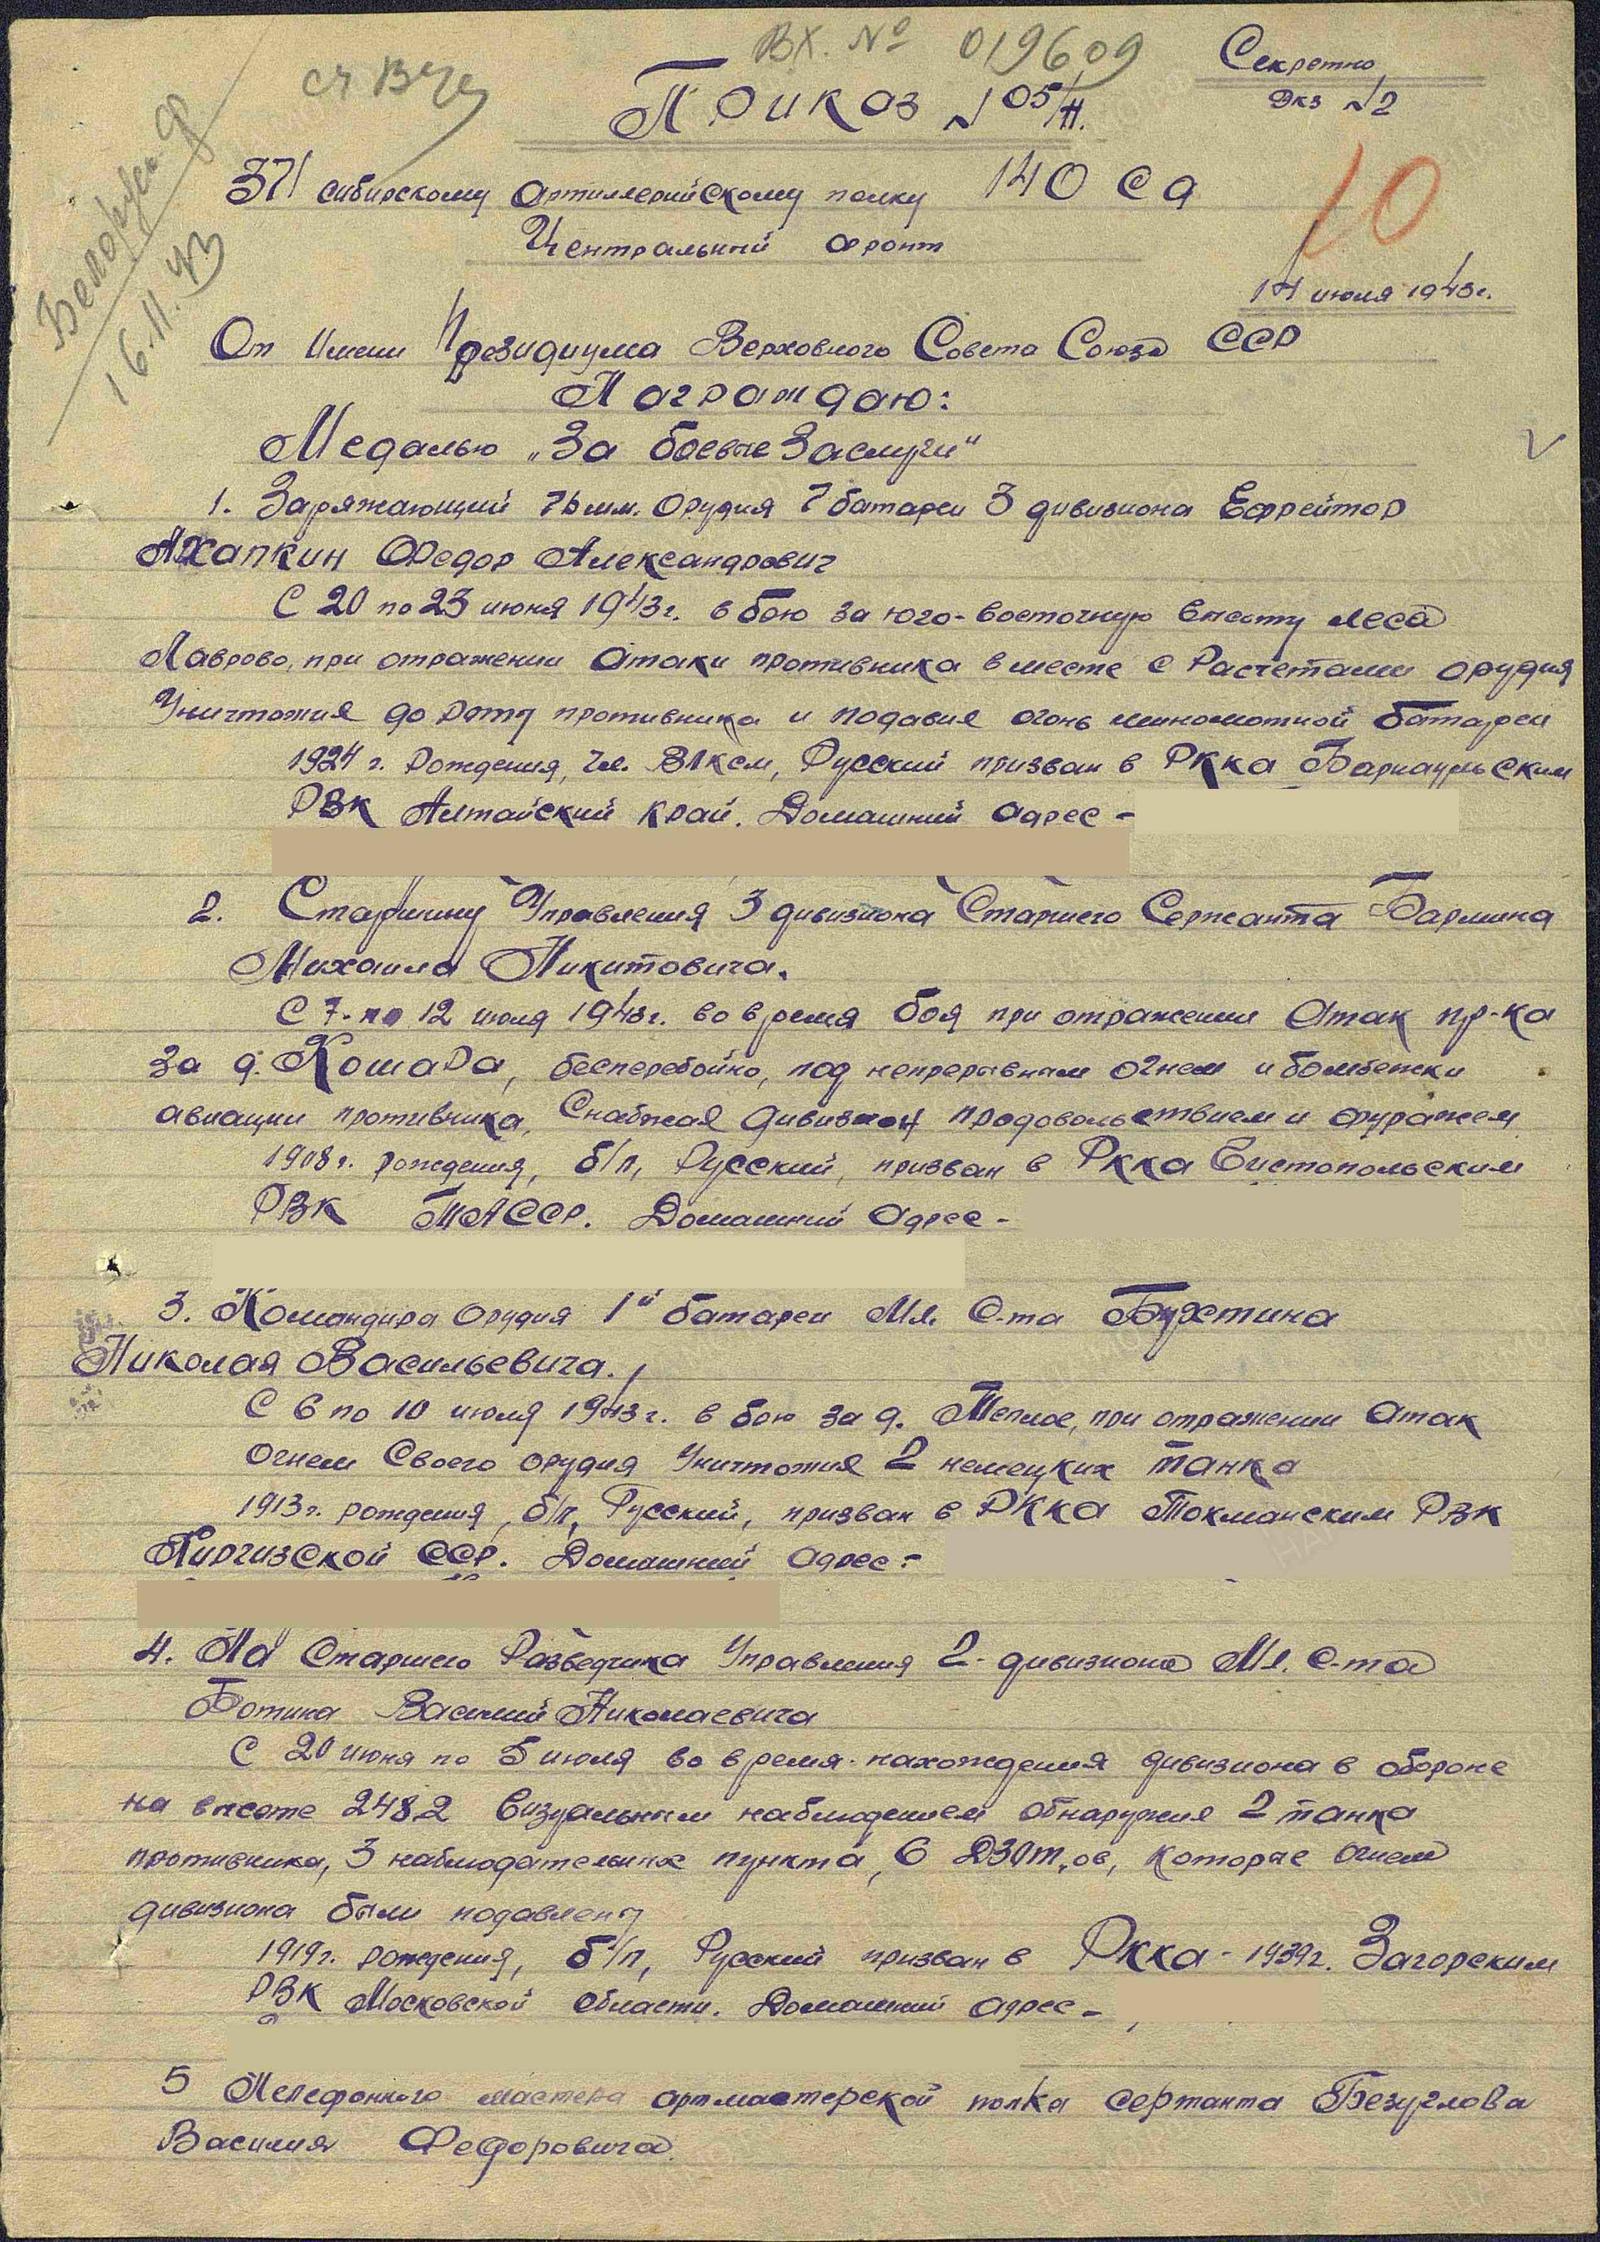 Вх. № 019609
Секретно
Экз №2
Приказ № 05/н.
10
371 сибирскому Артиллерийскому полку 140 СД
Центральний фронт
Белорусск. ф
16.11.43
14 июля 1943г.
От Имени Президиума Верховного Совета Союза ССР
Награждаю:
Медалью „За боевые Заслуги"
1. Заряжающий 76 мм. Орудия 7 батареи 3 дивизиона Ефрейтор
Ахапкин Федор Александрович
С 20 по 23 июня 1943г. в бою за юго-восточную высоту леса
Лаврово, при отражении Атаки противника вместе с Расчетами орудия
Уничтожил до роты противника и подавил огонь минометной батареи
1924 г. рождения, чл. ВЛКСМ, Русский призван в РККА Барнаульским
РВК Алтайский край. Домашний Адрес -
2. Старшину Управления 3 дивизиона Старшего Сержанта Бармина
Михаила Никитовича.
С 7. по 12 июля 1943г. во время боя при отражении Атак пр-ка
за д. Кошара, бесперебойно, под непрерывным огнем и бомбежки
авиации противника, Снабжал дивизион продовольствием и фуражем
1908г. рождения, б/п, Русский, призван в РККА Чистопольским
РВК ТАССР. Домашний Адрес -
3. Командира Орудия 1й батареи Мл. С-та Бухтина
Николая Васильевича.
С 6 по 10 июля 1943г. в бою за д. Теплое, при отражении Атак
Огнем Своего орудия Уничтожил 2 немецких танка
1913г. рождения, б/п, Русский, призван в РККА Токманским РВК
Киргизской ССР. Домашний Адрес -
4. На Старшего Разведчика Управления 2- дивизиона Мл. С-та
Ботина Василий Николаевича
С 20 июня по 5 июля во время нахождения дивизиона в обороне
на высоте 248.2 Визуальным наблюдением обнаружил 2 танка
противника, 3 наблюдательных пункта, 6 ДЗОТ,ов, которые огнем
дивизиона были подавлены
1919г. рождения, б/п, Русский призван в РККА - 1939г. Загорским
РВК Московской области. Домашний адрес -
5 Телефонного мастера артмастерской полка сержанта Безуглова
Василия Федоровича